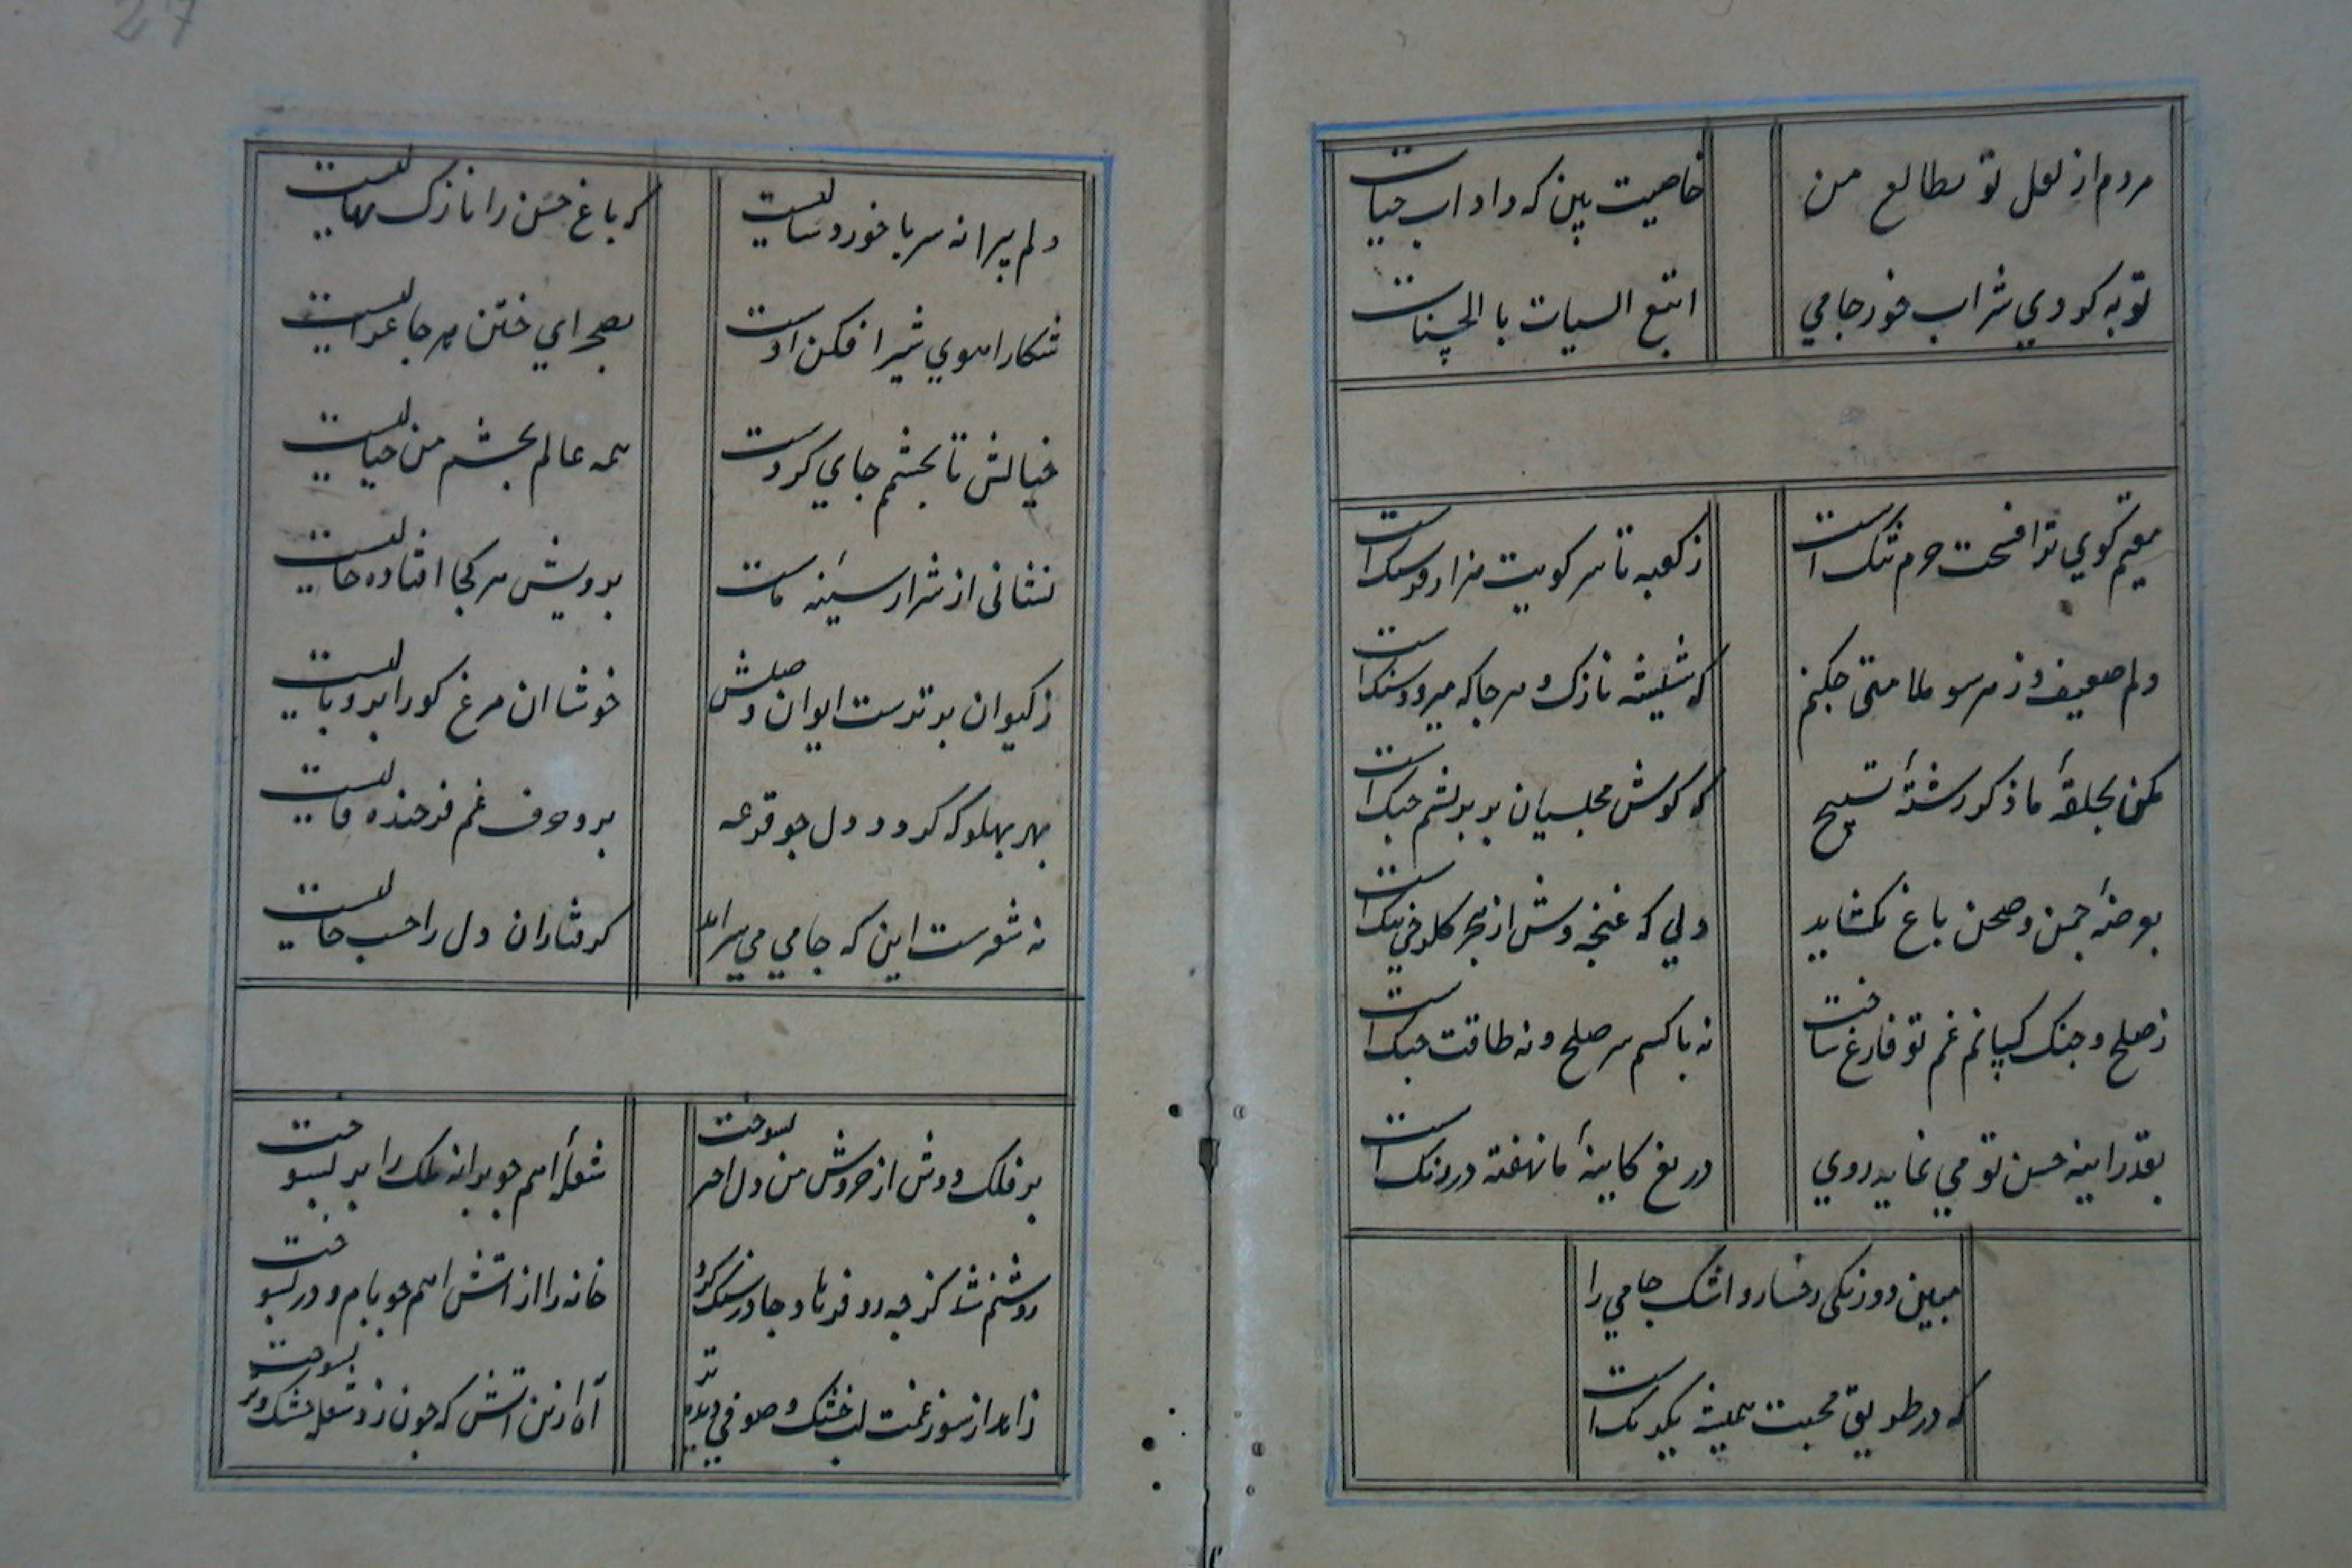 مردم از لعل تو بطالع من
خاصیت بین که داد اب حیات
توبه کردی شراب خور جامی
اتبع السیات بالحسنات
مقیم کوی ترا فسحت حرم تنک است
ز کعبه تا سر کویت هزار فرسنک است
دلم ضعیف و ز هر سو ملامتی چکنم
که شیشه نازک و هر جا که میرود سنک است
مکن بحلقهٔ ما ذکر رشتهٔ تسبیح
که کوش مجلسیان بر بریشم چنک است
بعرضهٔ چمن و صحن باغ نکشاید
دلی که غنچه وش از هجر کلرخی تنک است
ز صلح و جنک کسانم غم تو فارغ ساخت
نه با کسم سر صلح و نه طاقت جنک است
بقدر اینه حسن تو می نماید روی
دریغ کاینهٔ ما نهفته در زنک است
مبین دورنکی رخسار و اشک جامی را
که در طریق محبت همیشه یکرنک است
دلم پیرانه سر با خوردسالیست
که باغ حسن را نازک نهالیست
شکار اهوی شیر افکن اوست
بصحرای ختن هر جا غزالیست
خیالش تا بچشم جای کردست
همه عالم بچشم من خیالیست
نشانی از شرار سینه ماست
برویش هر کجا افتاده خالیست
ز کیوان برترست ایوان وصلش
خوشا ان مرغ کو را پر و بالیست
بهر پهلو که کردد دل چو قرعه
برو حرف غم فرخنده فالیست
نه شعرست این که جامی می سراید
کرفتاران دل را حسب حالیست
بر فلک دوش از خروش من دل اختر بسوخت
شعلهٔ اهم چو پروانه ملک را پر بسوخت
خانه را از اتش اهم چو بام و در بسوخت
زاهد از سوز غمت لب خشک و صوفی دیده تر
اه ازین اتش که چون زد شعله خشک و تر بسوخت
27